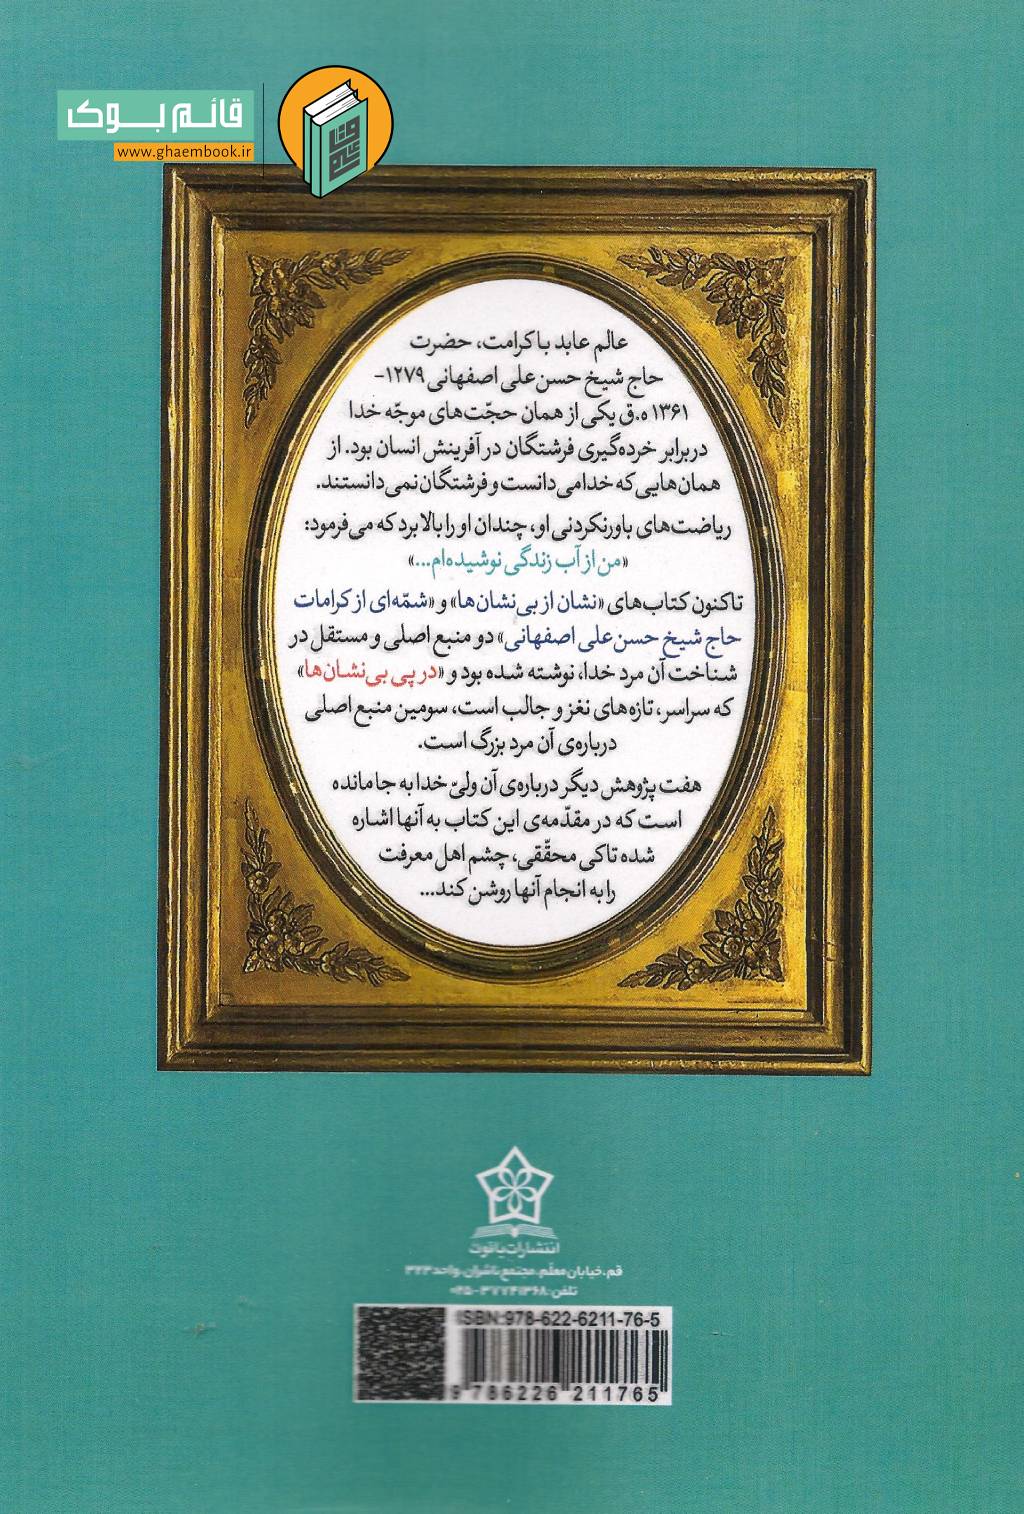 قائم بوک
www.ghaembook.ir
عالم عابد با کرامت، حضرت
حاج شیخ حسن علی اصفهانی ۱۲۷۹-
۱۳۶۱ ه.ق یکی از همان حجّت‌های موجّه خدا
دربرابر خرده‌گیری فرشتگان در آفرینش انسان بود. از
همان‌هایی که خدا می‌دانست و فرشتگان نمی‌دانستند.
ریاضت‌های باورنکردنی او، چندان او را بالا برد که می‌فرمود:
«من از آب زندگی نوشیده‌ام...»
تاکنون کتاب‌های «نشان از بی‌نشان‌ها» و «شمّه‌ای از کرامات
حاج شیخ حسن علی اصفهانی» دو منبع اصلی و مستقل در
شناخت آن مرد خدا، نوشته شده بود و «در پی بی‌نشان‌ها»
که سراسر، تازه‌های نغز و جالب است، سومین منبع اصلی
درباره‌ی آن مرد بزرگ است.
هفت پژوهش دیگر درباره‌ی آن ولیّ خدا به جا مانده
است که در مقدّمه‌ی این کتاب به آنها اشاره
شده تا کی محقّقی، چشم اهل معرفت
را به انجام آنها روشن کند...
انتشارات یاقوت
قم، خیابان معلّم، مجتمع ناشران، واحد ۳۲۳
تلفن: ۳۷۷۴۱۳۶۸-۰۲۵
ISBN:978-622-6211-76-5
9 786226 211765